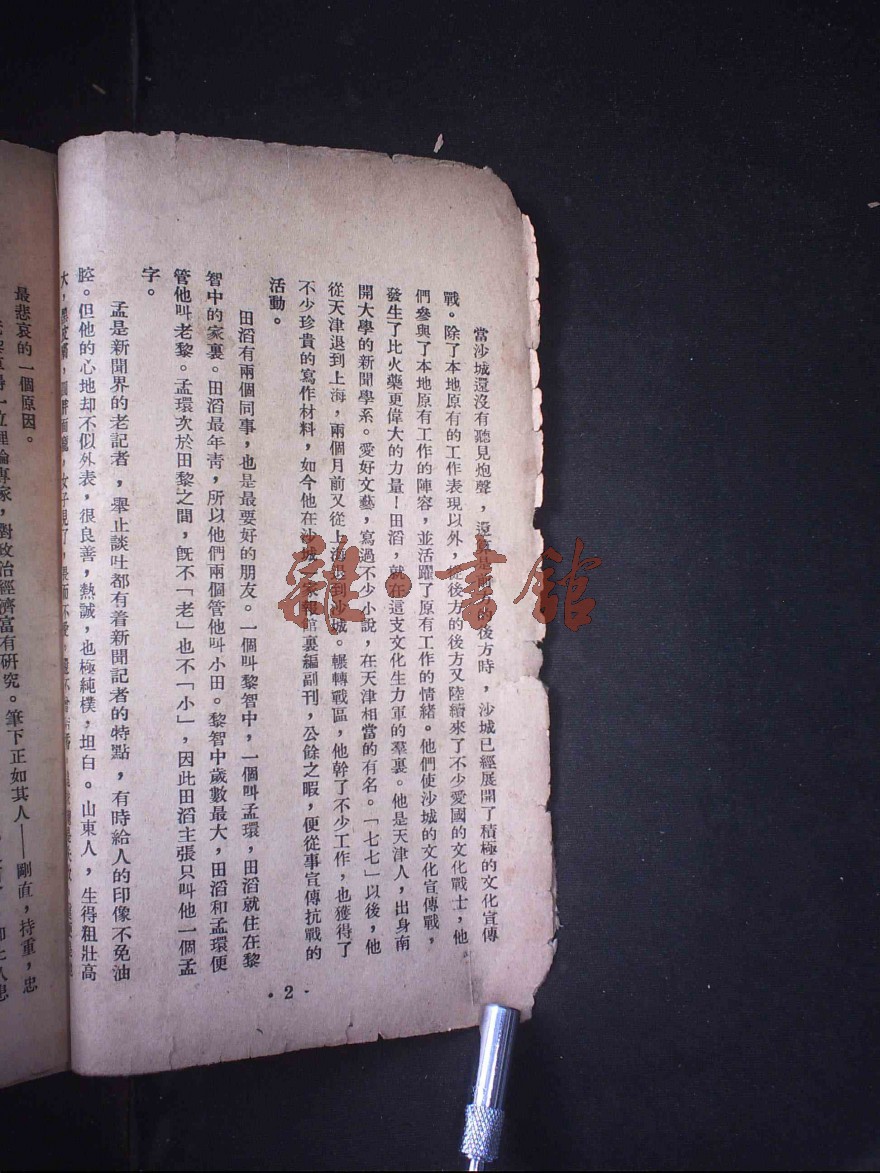 當沙城還沒有聽見炮聲，還算是前方的後方時，沙城已經展開了積極的文化宣傳
戰。除了本地原有的工作表現以外，從後方的後方又陸續來了不少愛國的文化戰士，他
們參與了本地原有工作的陣容，並活躍了原有工作的情緒。他們使沙城的文化宣傳戰，
發生了比火藥更偉大的力量！田滔，就在這支文化生力軍的羣裏。他是天津人，出身南
開大學的新聞學系。愛好文藝，寫過不少小說，在天津相當的有名。「七七」以後，他
從天津退到上海，兩個月前又從上海退到沙城。輾轉戰區，他幹了不少工作，也獲得了
不少珍貴的寫作材料，如今他在沙城一家報館裏編副刊，公餘之暇，便從事宣傳抗戰的
活動。
田滔有兩個同事，也是最要好的朋友。一個叫黎智中，一個叫孟環，田滔就住在黎
智中的家裏。田滔最年靑，所以他們兩個管他叫小田。黎智中歲數最大，田滔和孟環便
管他叫老黎。孟環次於田黎之間，旣不「老」也不「小」，因此田滔主張只叫他一個孟
字。
孟是新聞界的老記者，舉止談吐都有着新聞記者的特點，有時給人的印像不免油
腔。但他的心地却不似外表，很良善，熱誠，也極純樸，坦白。山東人，生得粗壯高
大，黑皮膚，
· 2 ·
最悲哀的一個原因。
理論專家，對政治經濟富有研究。筆下正如其人——剛直，持重，忠
雜·書館